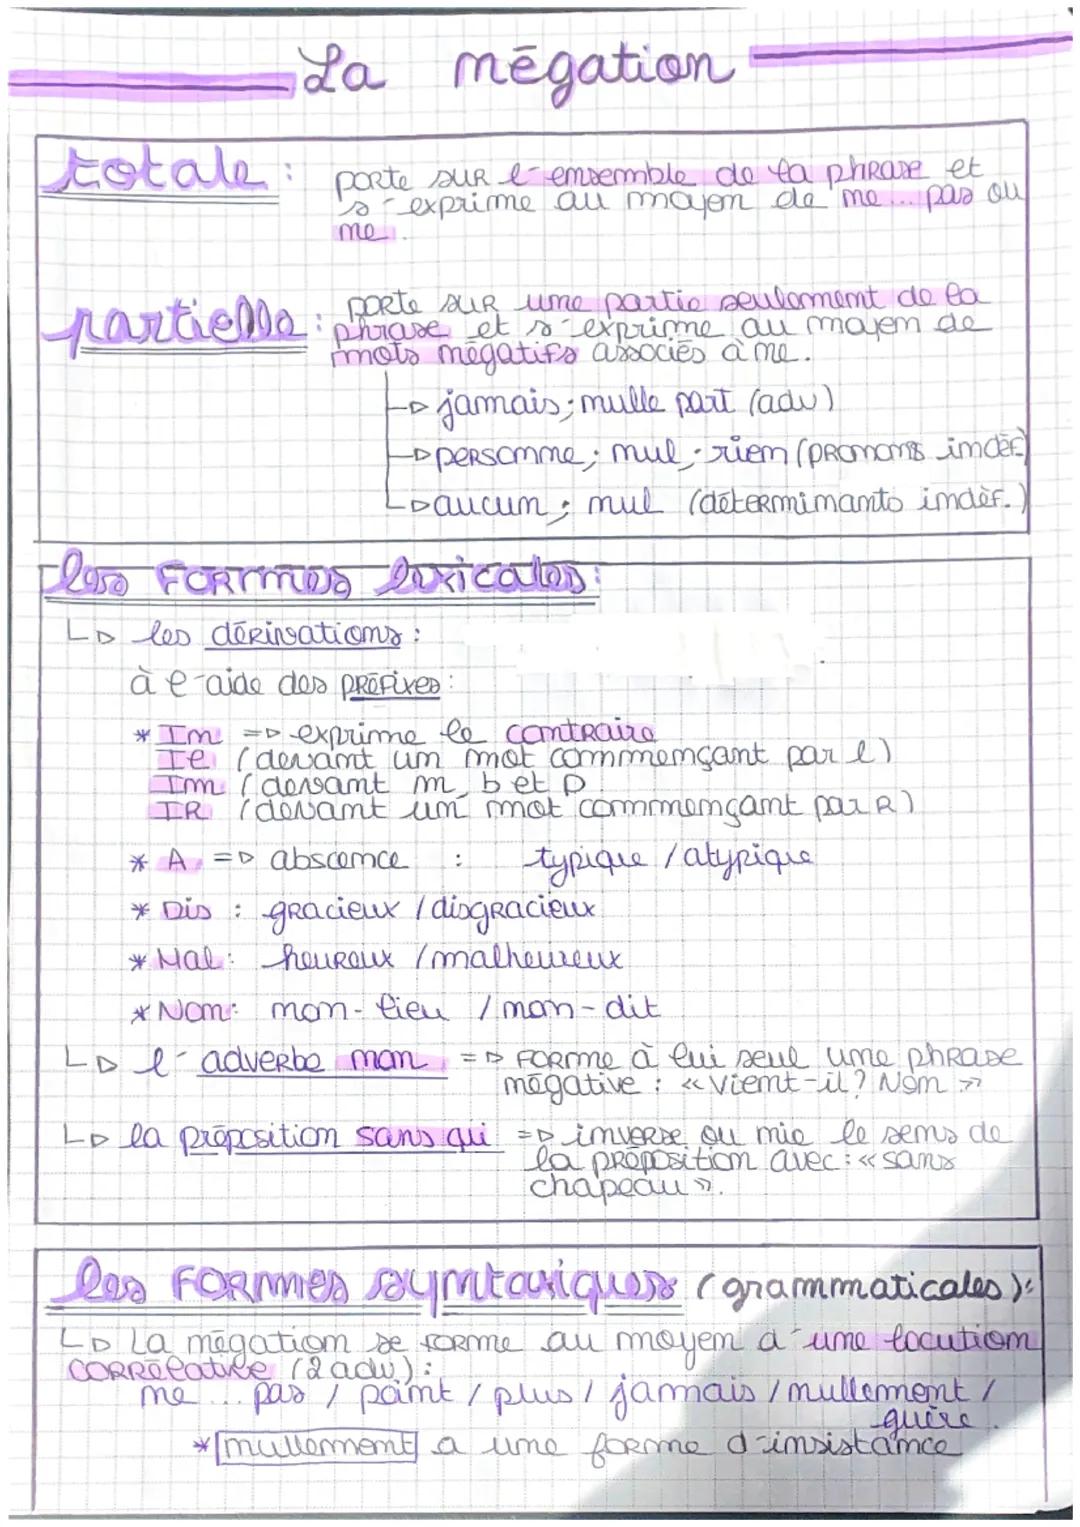 La négation
totale : porte sur l'ensemble de la phrase et
s'exprime au moyen de ne ... pas ou
ne.
partielle : porte sur une partie seulement de la
phrase et s'exprime au moyen de
mots négatifs associés à ne.
→ jamais ; nulle part (adv)
→ personne ; nul ; rien (pronoms indéf)
→ aucun ; nul (déterminants indéf.)
les formes lexicales :
↳ les dérivations :
à l'aide des préfixes :
* In => exprime le contraire
Il (devant un mot commençant par l)
Im (devant m, b et p
IR (devant un mot commençant par R)
* A => abscence : typique / atypique
* Dis : gracieux / disgracieux
* Mal : heureux / malheureux
* Non : non-lieu / non-dit
↳ l'adverbe non => forme à lui seul une phrase
négative : « Vient-il ? Non »
↳ la préposition sans qui => inverse ou nie le sens de
la préposition avec : « sans
chapeau ».
les formes syntaxiques (grammaticales) :
↳ La négation se forme au moyen d'une locution
corrélative (2 adv) :
ne ... pas / point / plus / jamais / nullement /
guère.
* nullement a une forme d'insistance